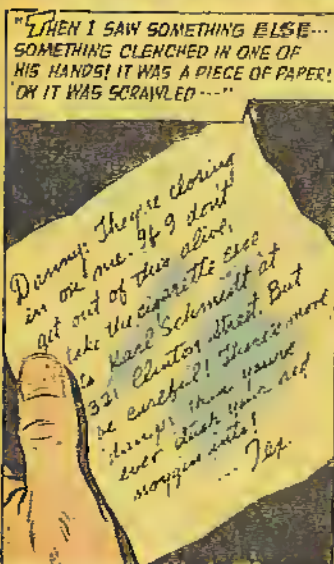 "THEN I SAW SOMETHING ELSE---
SOMETHING CLENCHED IN ONE OF
HIS HANDS! IT WAS A PIECE OF PAPER!
ON IT WAS SCRAWLED ---"
Danny: They're closing
in on me. If I don't
get out of this alive,
take the cigarette case
to Karl Schmidtt at
321 Clinton Street. But
be careful! There's more
danger than you've
ever stuck your red
noggin into!
... Tex.